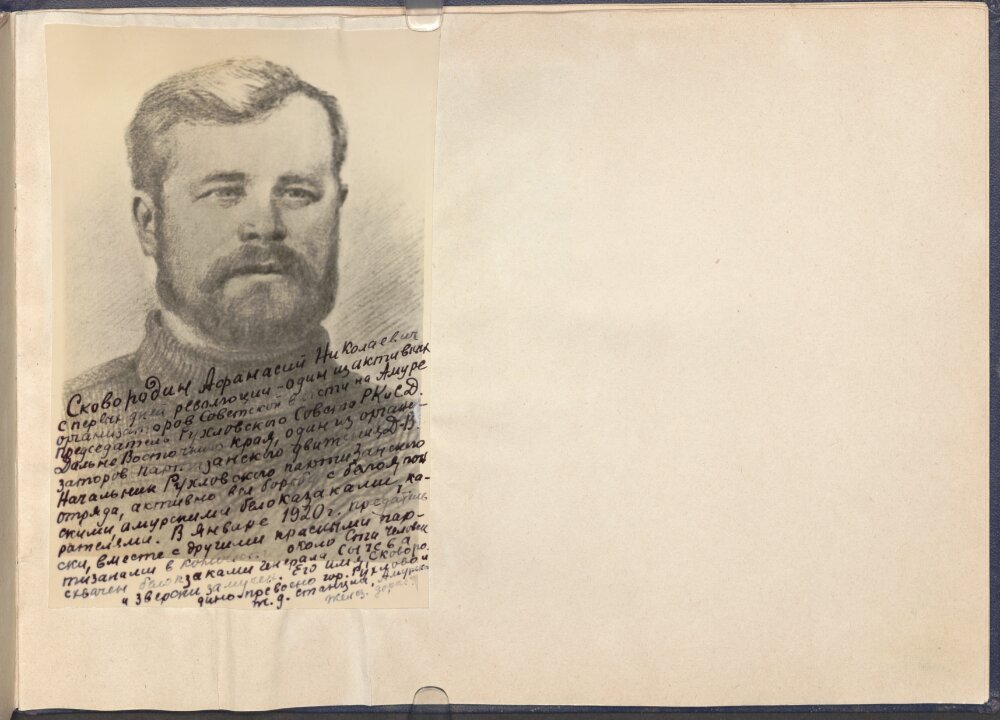 Сковородин Афанасий Николаевич
с первых дней революции - один из активных
организаторов Советской власти на Амуре
Председатель Рухловского Совета РК и СД.
Дальне Восточного края, один из органи-
заторов партизанского движения Д-В.
Начальник Рухловского партизанского
отряда, активно вел борьбу с белояпон
скими амурскими белоказаками, ка-
рателями. В Январе 1920 г. предатель
ски, вместе с другими красными пар-
тизанами в количестве около Ста человек
схвачен белоказаками генерала Сычева
и зверски замучен. Его имя Сковоро
дино превоено гор. Рухлово и
ж.д. станция, Амурск
желез.